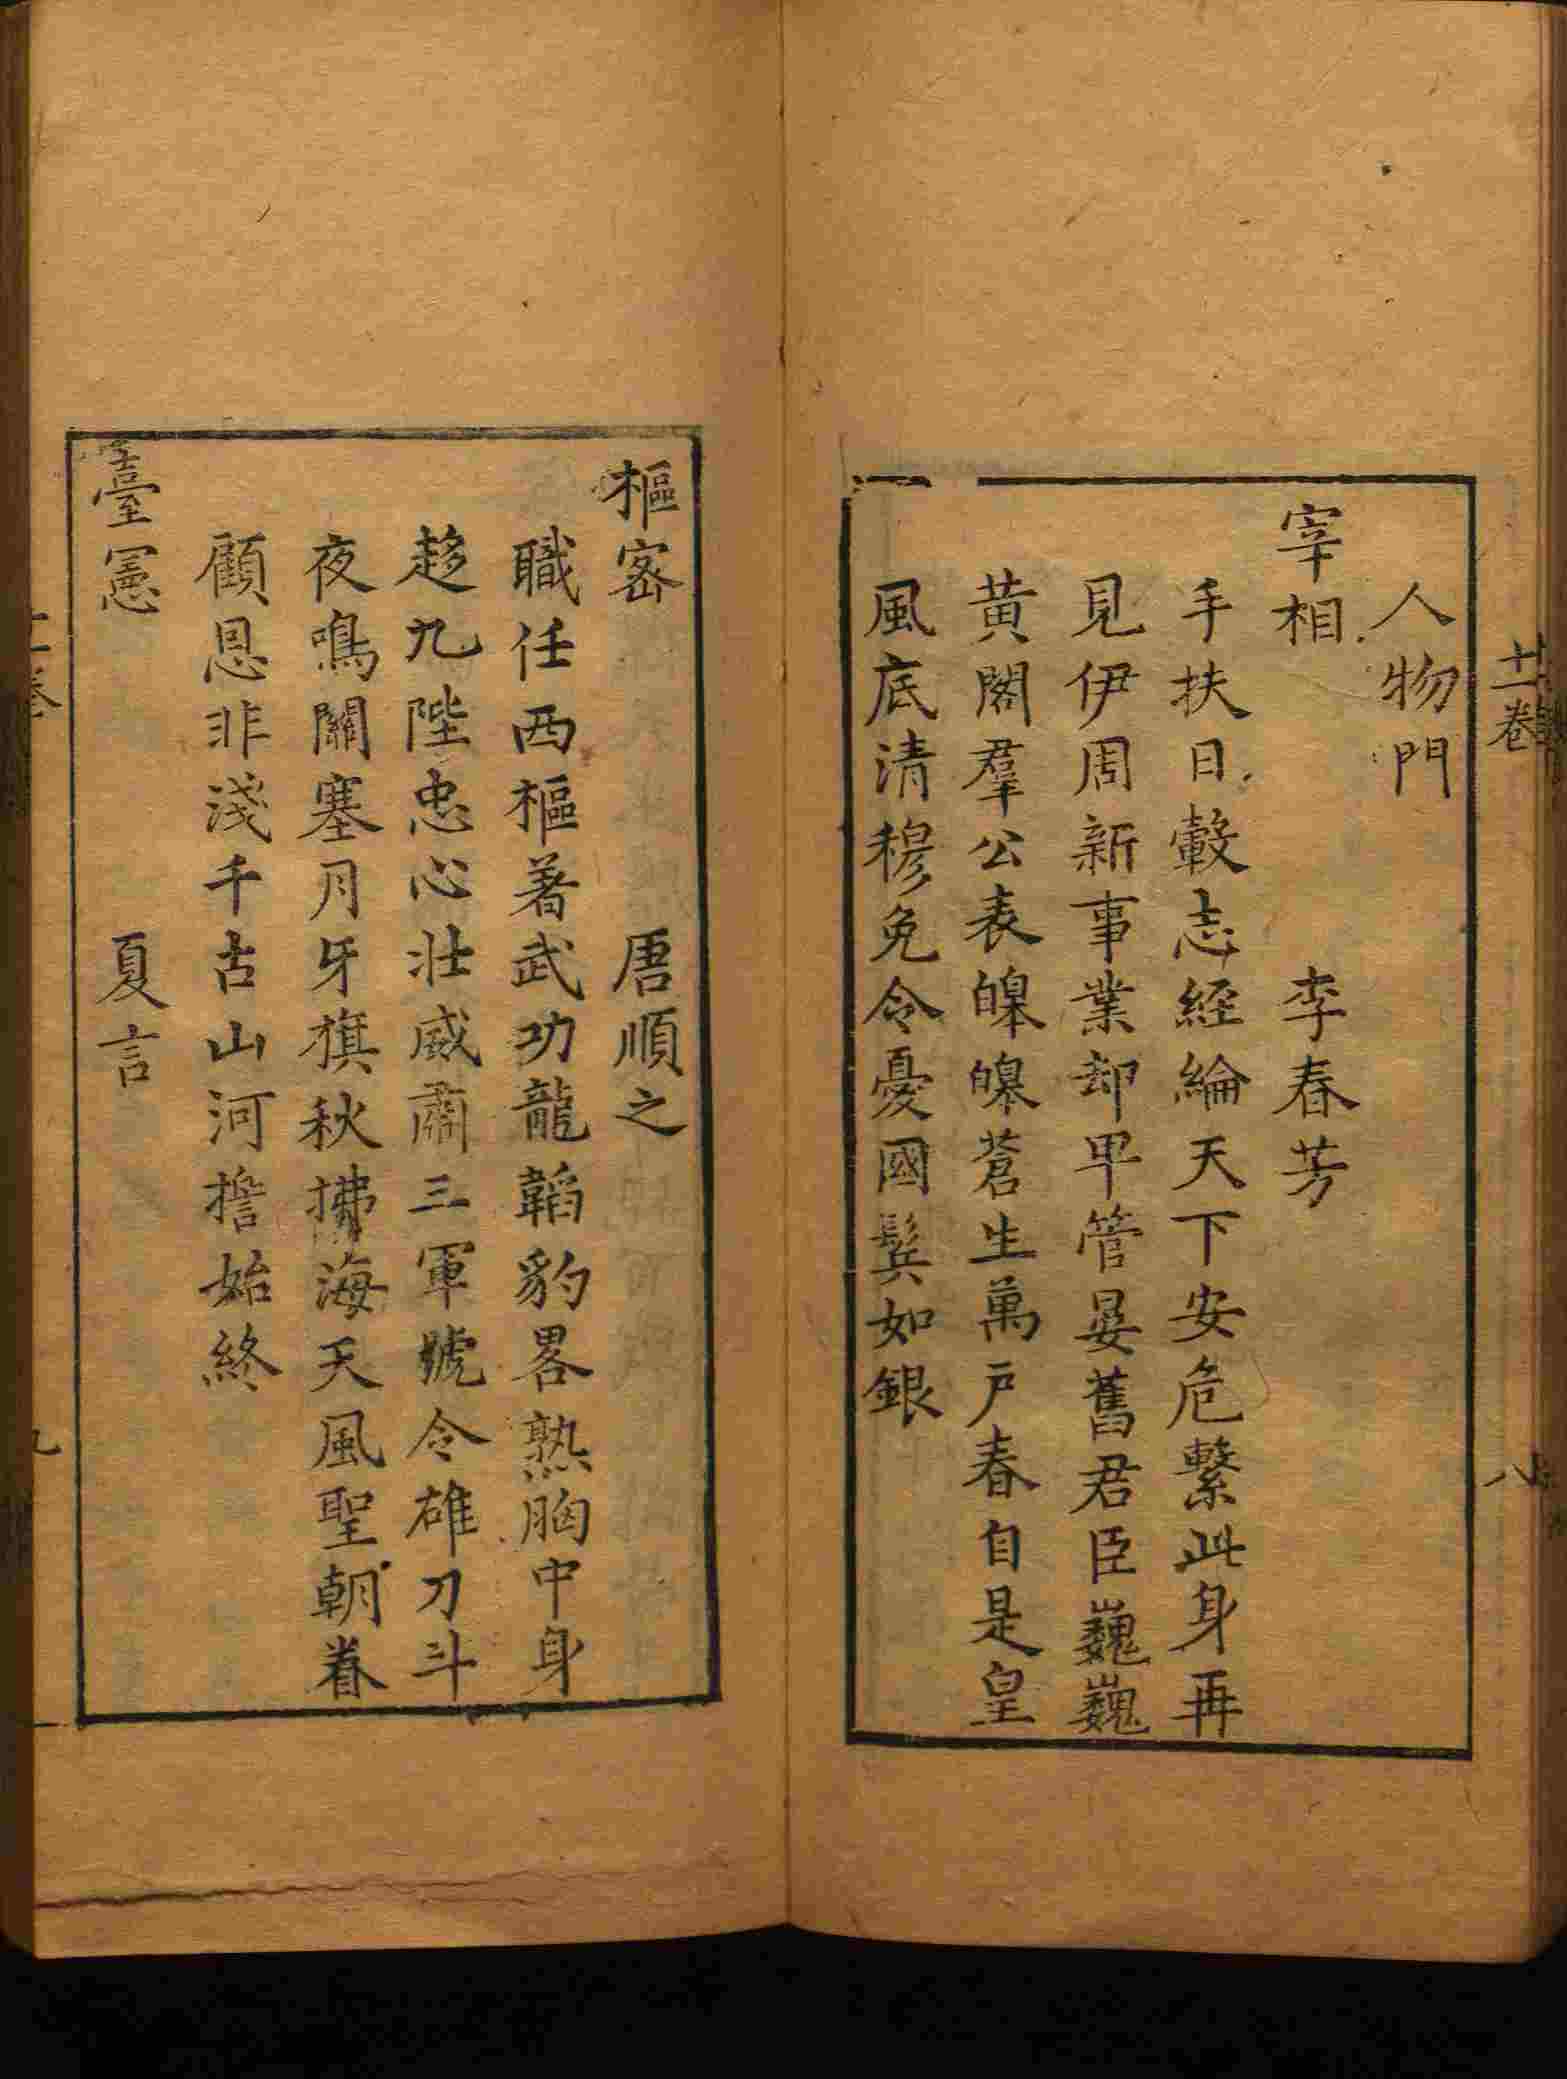 廿一卷
八
人物門
宰相 李春芳
手扶日轂志經綸天下安危繫此身再
見伊周新事業却卑管晏舊君臣巍巍
黄閣羣公表皞皞蒼生萬戶春自是皇
風底清穆免令憂國鬂如銀
樞宻 唐順之
職任西樞著武功龍韜豹畧熟胸中身
趍九陛忠心壯威肅三軍號令雄刀斗
夜鳴關塞月牙旗秋拂海天風聖朝眷
顧恩非淺千古山河擔始終
臺憲 夏言
九